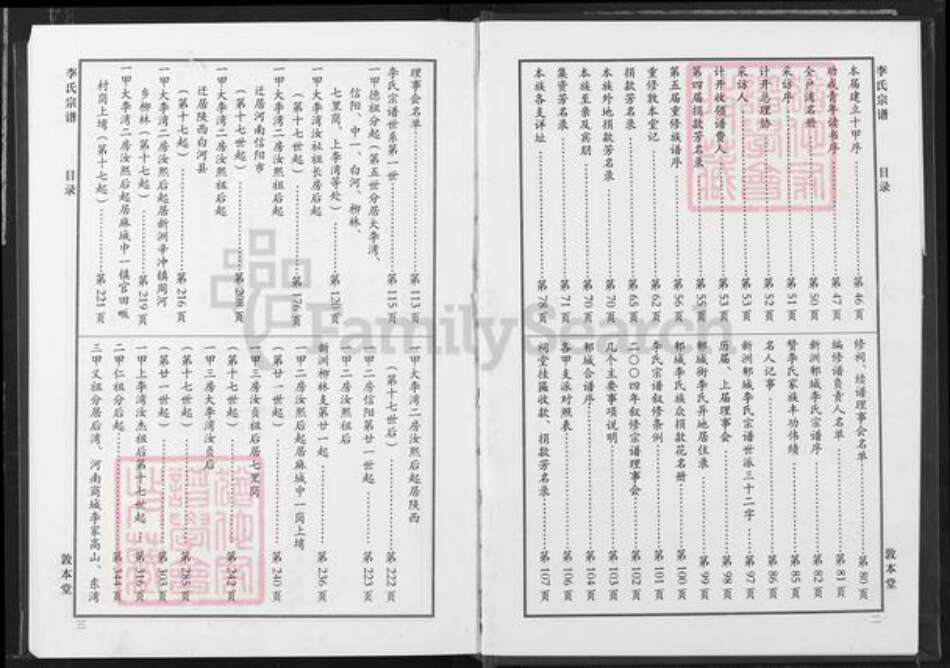 李氏宗谱 目录 敦本堂 二
本届建立十甲序 第46页
劝戒青年读书序 第47页
全户湾名册 第50页
采访序 第51页
计开总理协 第52页
采访人 第53页
计开收领谱费人 第53页
第四届捐款芳名录 第55页
第五届重修族谱序 第56页
重修敦本堂记 第62页
捐款芳名录 第65页
本族外地捐款芳名录 第70页
本族至亲及宾朋 第70页
集资芳名录 第71页
本族各支详址 第78页
修祠、续谱理事会名单 第80页
编修谱负责人名单 第81页
新洲邾城李氏宗谱序 第82页
赞李氏家族丰功伟绩 第85页
名人记事 第86页
新洲邾城李氏宗谱世派三十二字 第97页
历届、上届理事会 第98页
邾城街李氏异地居住录 第99页
邾城李氏族众捐款花名册 第100页
李氏宗谱叙修条例 第101页
二〇〇四年叙修宗谱理事会 第102页
几个主要事项说明 第103页
邾城合谱序 第104页
各甲支派对照表 第106页
祠堂挂匾收款、捐款芳名录 第107页
理事会名单 第113页
李氏宗谱世系第一世 第115页
一甲德祖分起（第五世分居大李湾、
信阳、中一、白河、柳林、
七里岗、上李湾等处） 第120页
一甲大李湾汝祉祖长房后起
（第十七世起） 第176页
一甲大李湾二房汝熙祖后起
迁居河南信阳市
（第十七世起） 第208页
一甲大李湾二房汝熙祖后起
迁居陕西白河县
（第十七起） 第216页
一甲大李湾二房汝熙后起居新洲辛冲镇周河
乡柳林（第十七起） 第219页
一甲大李湾二房汝熙后起居麻城中一镇官田畈
村岗上塆（第十七起） 第221页
一甲大李湾二房汝熙后起居陕西
（第十七世后） 第222页
一甲二房信阳第廿一世起 第223页
一甲二房汝熙祖后
新洲柳林支第廿一起 第236页
一甲二房汝熙后起居麻城中一岗上塆
（第廿一世起） 第240页
一甲三房汝贞祖后居七里岗
（第十七世起） 第242页
一甲三房大李湾汝贞后
（第十七世起） 第285页
（第廿一世起） 第303页
一甲上李湾汝杰祖后第十七世起 第316页
二甲仁祖分后起 第344页
三甲义祖分居后湾、河南商城李家高山、东湾
李氏宗谱 目录 敦本堂 三
FamilySearch